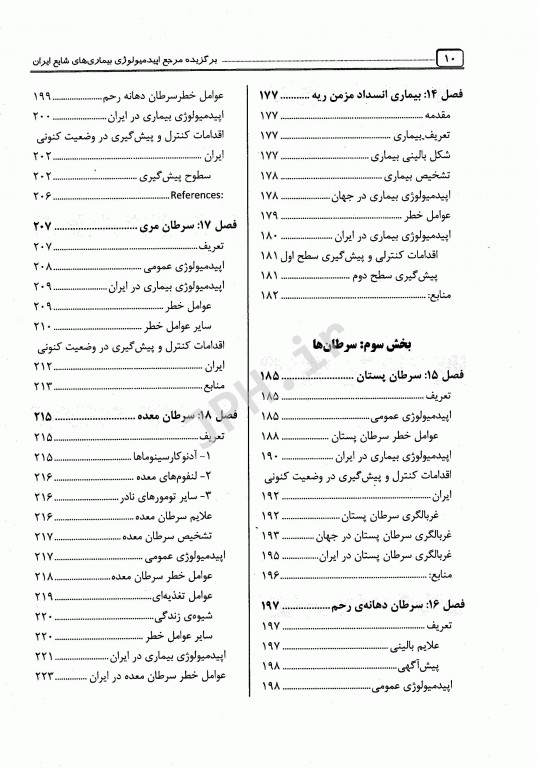 ۱۰ برگزیده مرجع اپیدمیولوژی بیماری‌های شایع ایران
فصل ۱۴: بیماری انسداد مزمن ریه .......... ۱۷۷
مقدمه .......... ۱۷۷
تعریف بیماری .......... ۱۷۷
شکل بالینی بیماری .......... ۱۷۷
تشخیص بیماری .......... ۱۷۸
اپیدمیولوژی بیماری در جهان .......... ۱۷۸
عوامل خطر .......... ۱۷۹
اپیدمیولوژی بیماری در ایران .......... ۱۸۰
اقدامات کنترلی و پیش‌گیری سطح اول ۱۸۱
پیش‌گیری سطح دوم .......... ۱۸۱
منابع: .......... ۱۸۲
بخش سوم: سرطان‌ها
فصل ۱۵: سرطان پستان .......... ۱۸۵
تعریف .......... ۱۸۵
اپیدمیولوژی عمومی .......... ۱۸۵
عوامل خطر سرطان پستان .......... ۱۸۸
اپیدمیولوژی بیماری در ایران .......... ۱۹۰
اقدامات کنترل و پیش‌گیری در وضعیت کنونی
ایران .......... ۱۹۲
غربالگری سرطان پستان .......... ۱۹۲
غربالگری سرطان پستان در جهان .......... ۱۹۳
غربالگری سرطان پستان در ایران .......... ۱۹۵
منابع: .......... ۱۹۶
فصل ۱۶: سرطان دهانه‌ی رحم .......... ۱۹۷
تعریف .......... ۱۹۷
علایم بالینی .......... ۱۹۷
پیش‌آگهی .......... ۱۹۸
اپیدمیولوژی عمومی .......... ۱۹۸
عوامل خطرسرطان دهانه رحم .......... ۱۹۹
اپیدمیولوژی بیماری در ایران .......... ۲۰۰
اقدامات کنترل و پیش‌گیری در وضعیت کنونی
ایران .......... ۲۰۲
سطوح پیش‌گیری .......... ۲۰۲
References: .......... ۲۰۶
فصل ۱۷: سرطان مری .......... ۲۰۷
تعریف .......... ۲۰۷
اپیدمیولوژی عمومی .......... ۲۰۸
اپیدمیولوژی بیماری در ایران .......... ۲۰۹
عوامل خطر .......... ۲۰۹
سایر عوامل خطر .......... ۲۱۰
اقدامات کنترل و پیش‌گیری در وضعیت کنونی
ایران .......... ۲۱۲
منابع .......... ۲۱۳
فصل ۱۸: سرطان معده .......... ۲۱۵
تعریف .......... ۲۱۵
۱- آدنوکارسینوماها .......... ۲۱۵
۲- لنفوم‌های معده .......... ۲۱۶
۳- سایر تومورهای نادر .......... ۲۱۶
علایم سرطان معده .......... ۲۱۶
تشخیص سرطان معده .......... ۲۱۷
اپیدمیولوژی عمومی .......... ۲۱۷
عوامل خطر سرطان معده .......... ۲۱۸
عوامل تغذیه‌ای .......... ۲۱۹
شیوه‌ی زندگی .......... ۲۲۰
سایر عوامل خطر .......... ۲۲۰
اپیدمیولوژی بیماری در ایران .......... ۲۲۱
عوامل خطر سرطان معده در ایران .......... ۲۲۳
JPH.ir